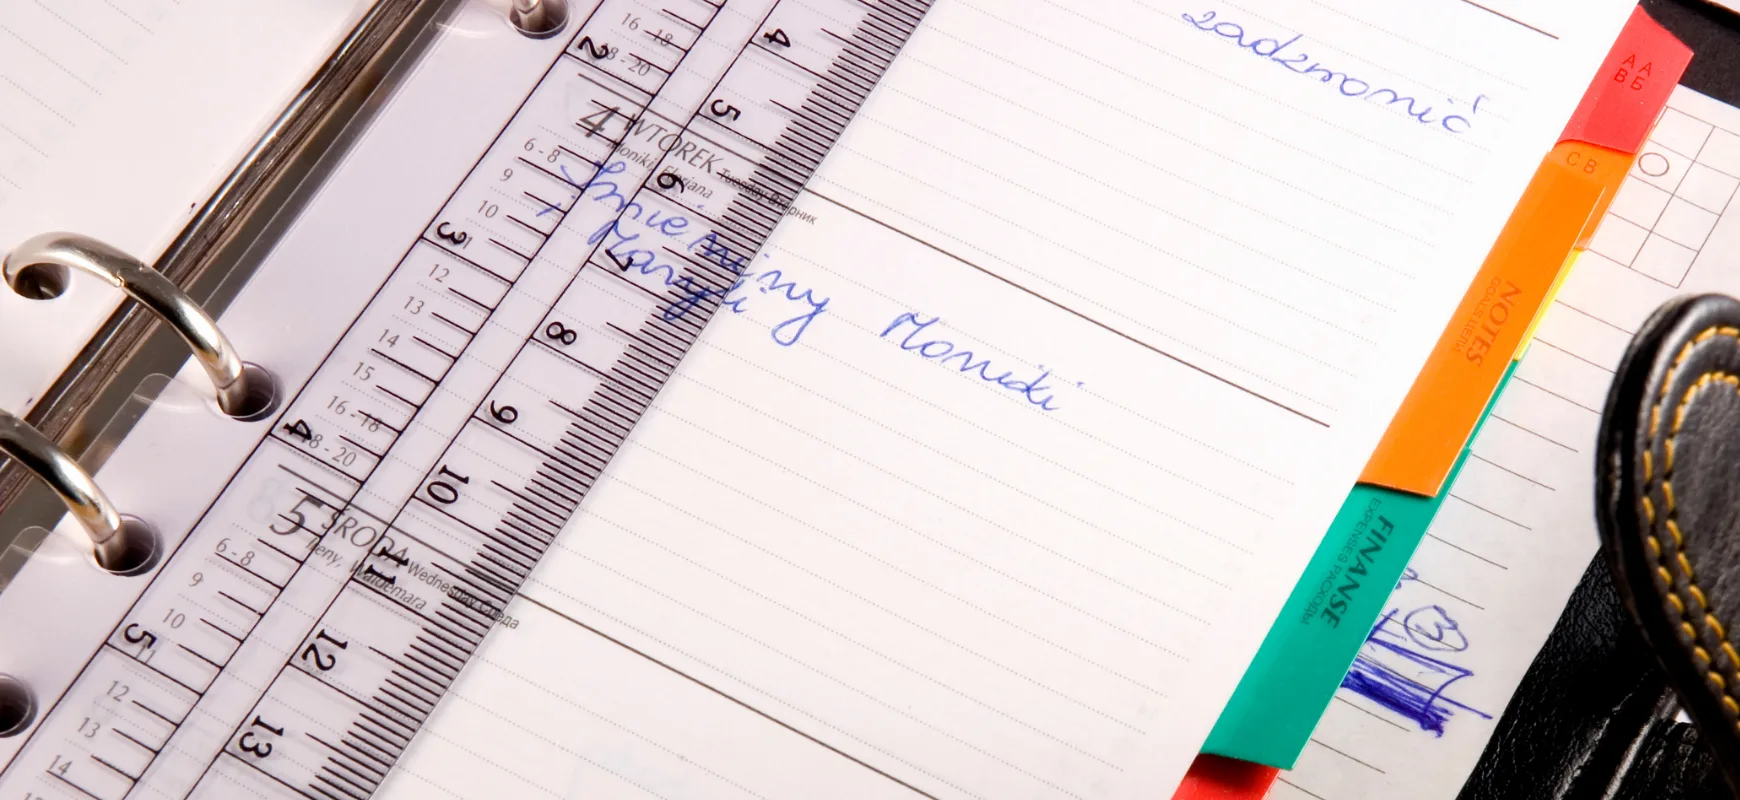 zadzwonić
16 - 18
18 - 20
4 WTOREK Tuesday Вторник
Moniki, Floriana
Imieniny Moniki
i Maryli
6 - 8
9
10
11
12
13
14
15
16 - 18
18 - 20
5 ŚRODA Wednesday Среда
Ireny, Waldemara
6 - 8
9
10
11
12
13
14
2
3
4
5
4
5
6
7
8
9
10
11
12
13
A A
B Б
C B
NOTES
GOALS ЦЕЛИ
FINANSE
EXPENSES РАСХОДЫ
3